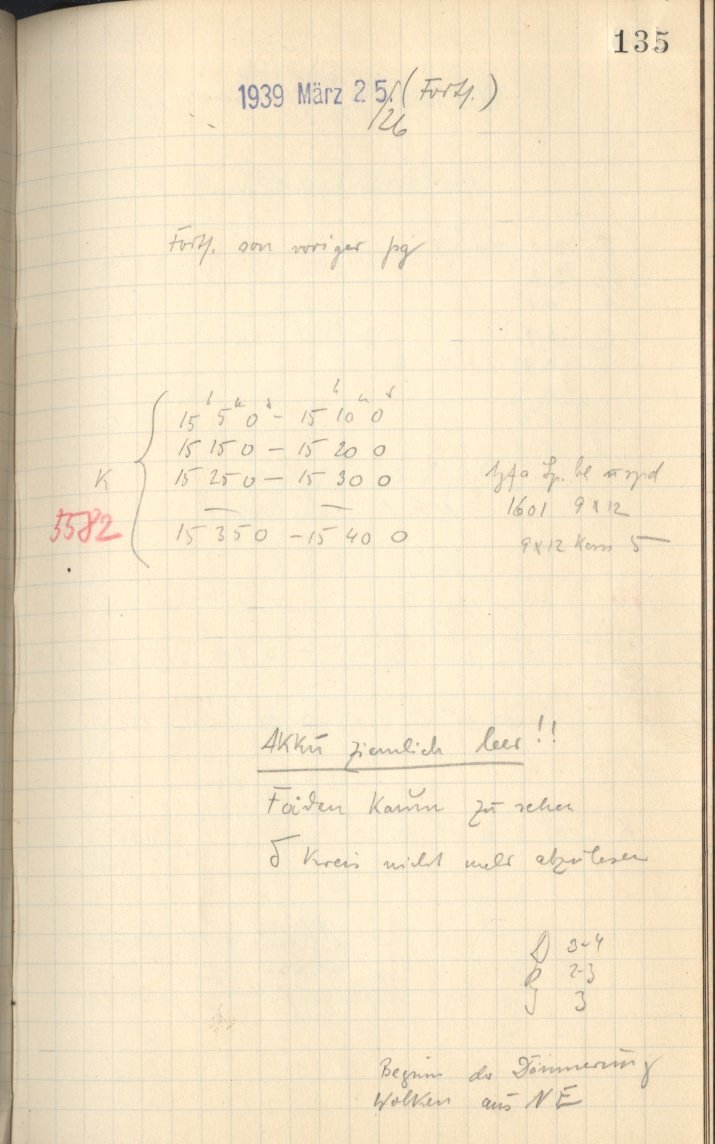 135
1939 März 25./26 (Forts.)
Forts. von voriger pg
15h 5m 0s - 15h 10m 0s
15 15 0 - 15 20 0
K 15 25 0 - 15 30 0
5582 15 35 0 - 15 40 0
Agfa
1601 9x12
9x12 Kass 5
Akku ziemlich leer!!
Fäden kaum zu sehen
δ Kreis nicht mehr abzulesen
D 3-4
R 2-3
J 3
Beginn der Dämmerung
Wolken aus NE